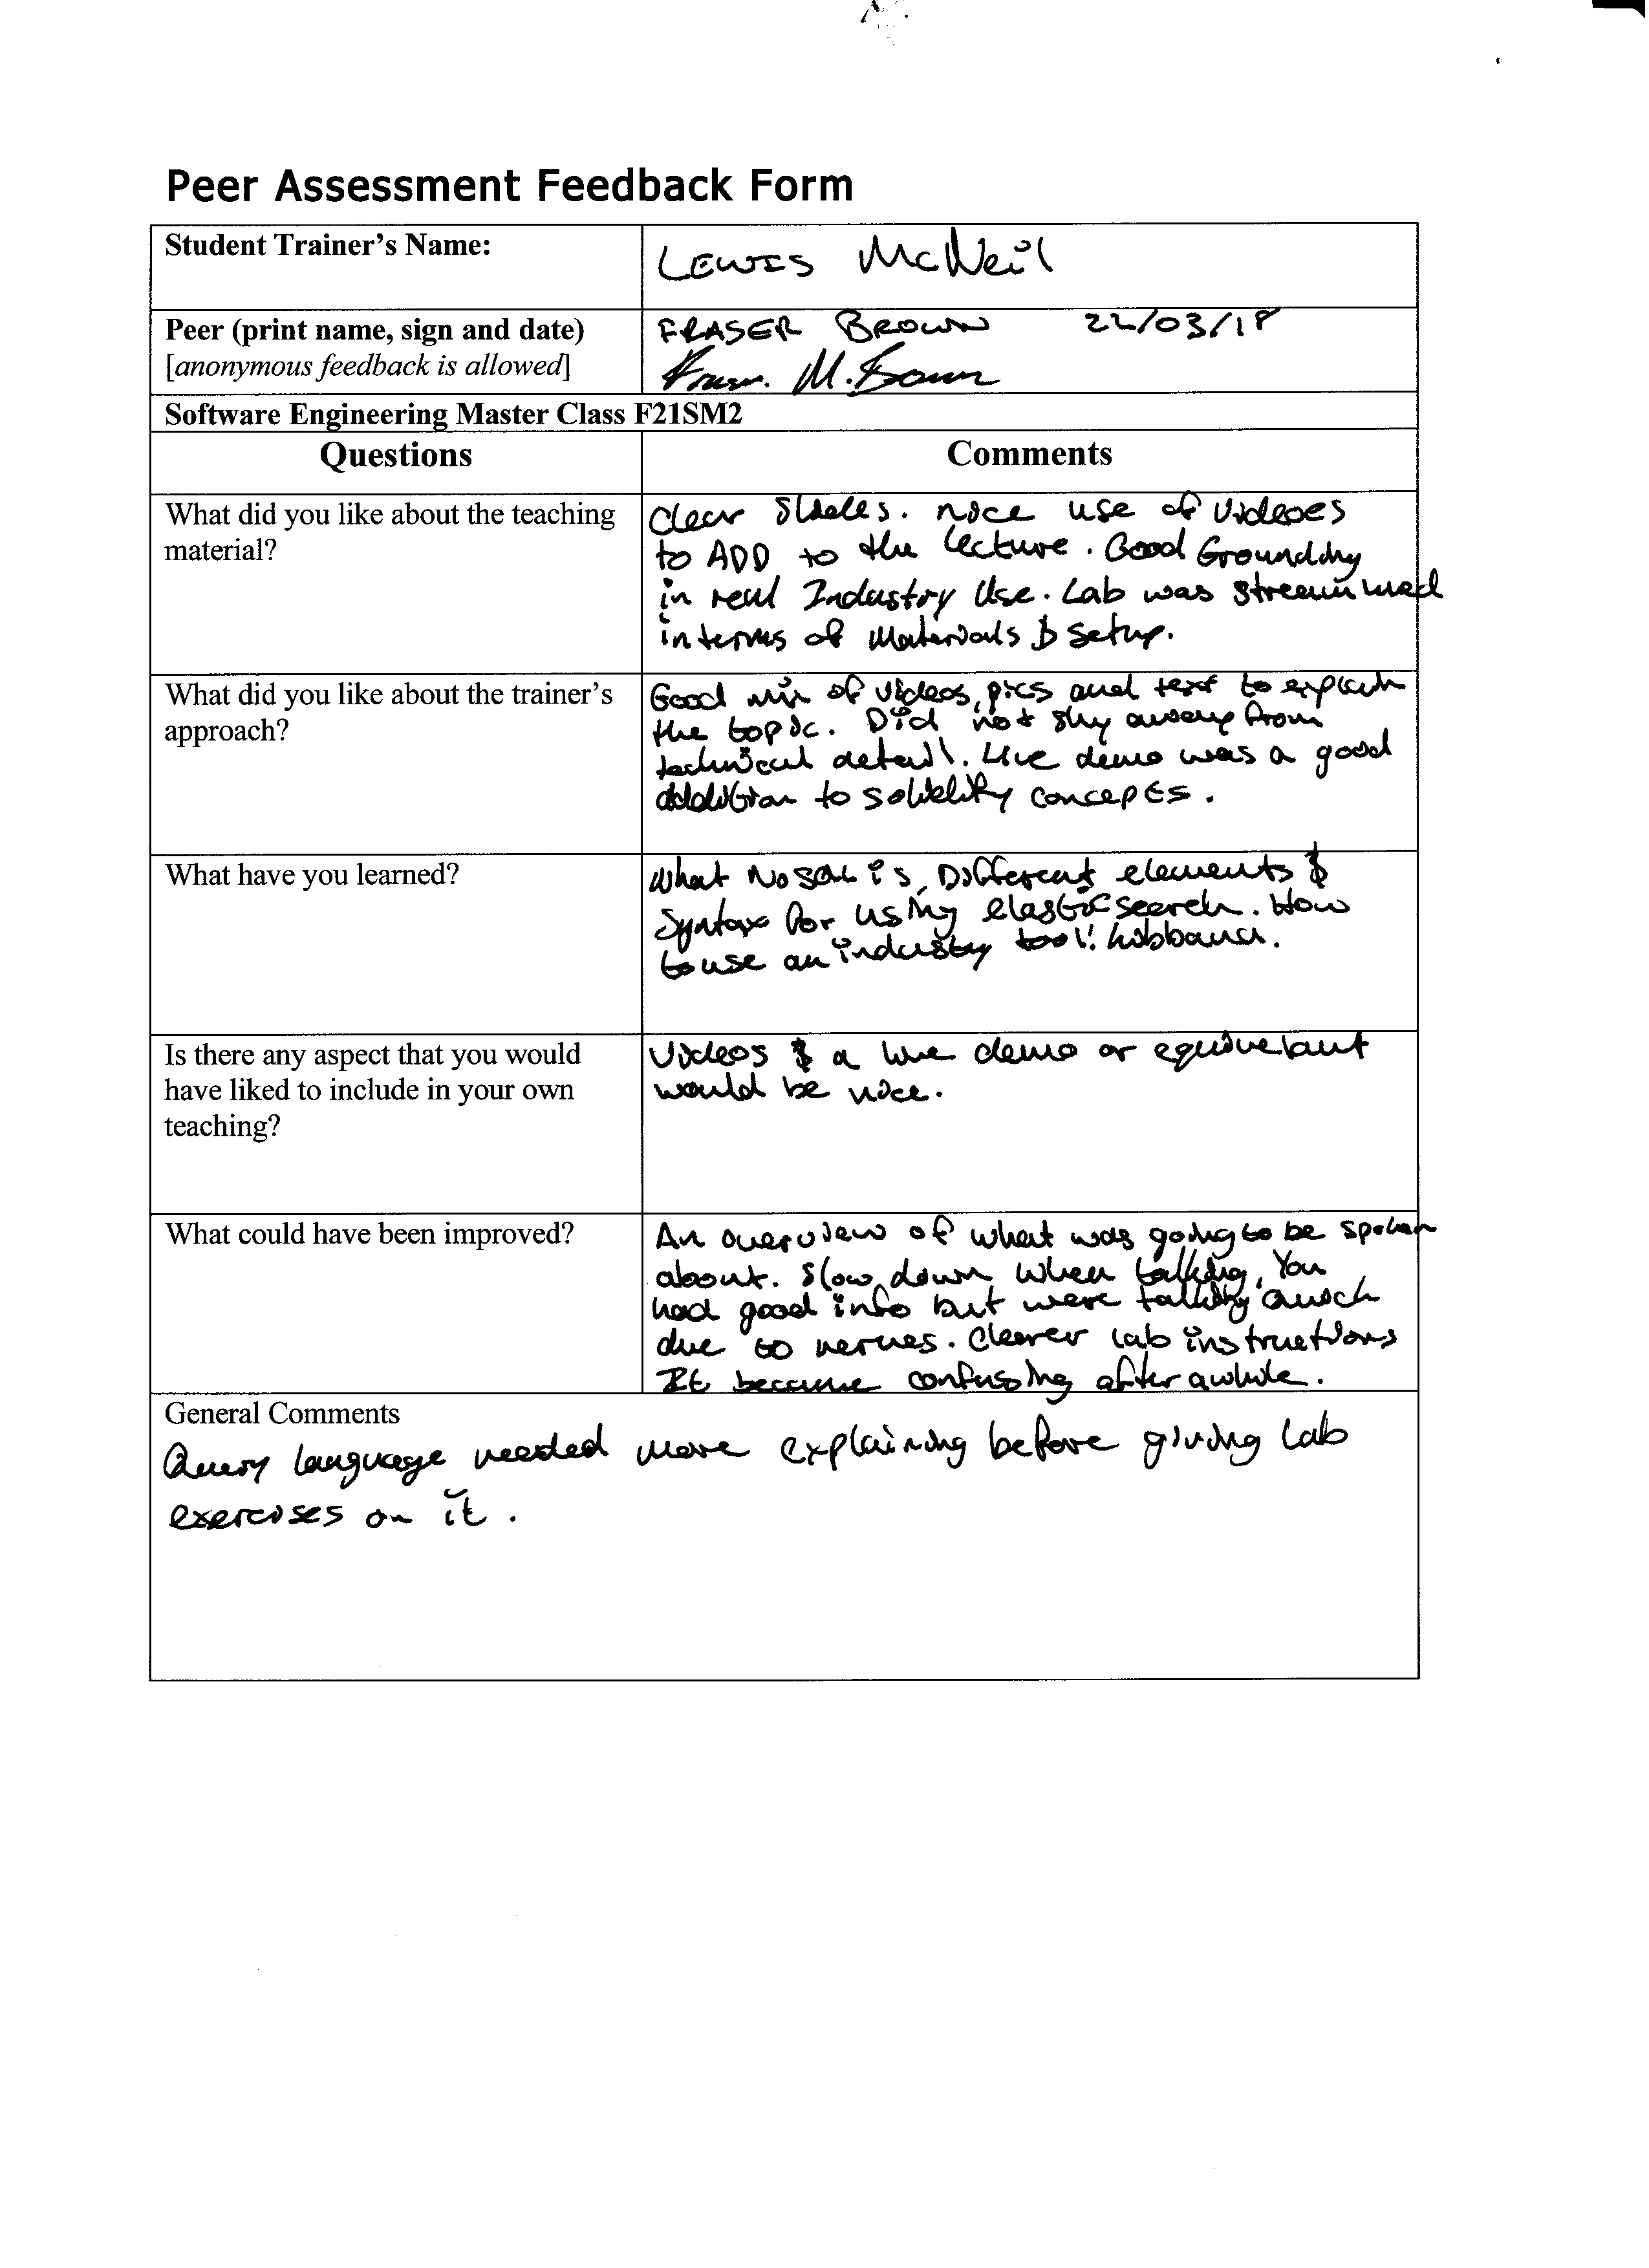 Peer Assessment Feedback Form
Student Trainer's Name:
LEWIS McNeil
Peer (print name, sign and date)
[anonymous feedback is allowed]
FRASER BROWN 22/03/18
M. Brown
Software Engineering Master Class F21SM2
Questions
Comments
What did you like about the teaching
material?
Clear Slides. nice use of videoes
to ADD to the lecture. Good Grounding
in real Industry Use. Lab was streamlined
in terms of materials & setup.
What did you like about the trainer's
approach?
Good mix of videos, pics and text to explain
the topic. Did not shy away from
technical detail. Live demo was a good
addition to solidify concepts.
What have you learned?
What NoSQL is, Different elements &
Syntax for using elasticsearch. How
to use an industry tool: kibbana.
Is there any aspect that you would
have liked to include in your own
teaching?
Videos & a live demo or equivelant
would be nice.
What could have been improved?
An overview of what was going to be spoken
about. Slow down when talking, You
had good info but were talking quick
due to nerves. Clearer lab instructions
It became confusing after awhile.
General Comments
Query language needed more explaining before giving lab
exercises on it.